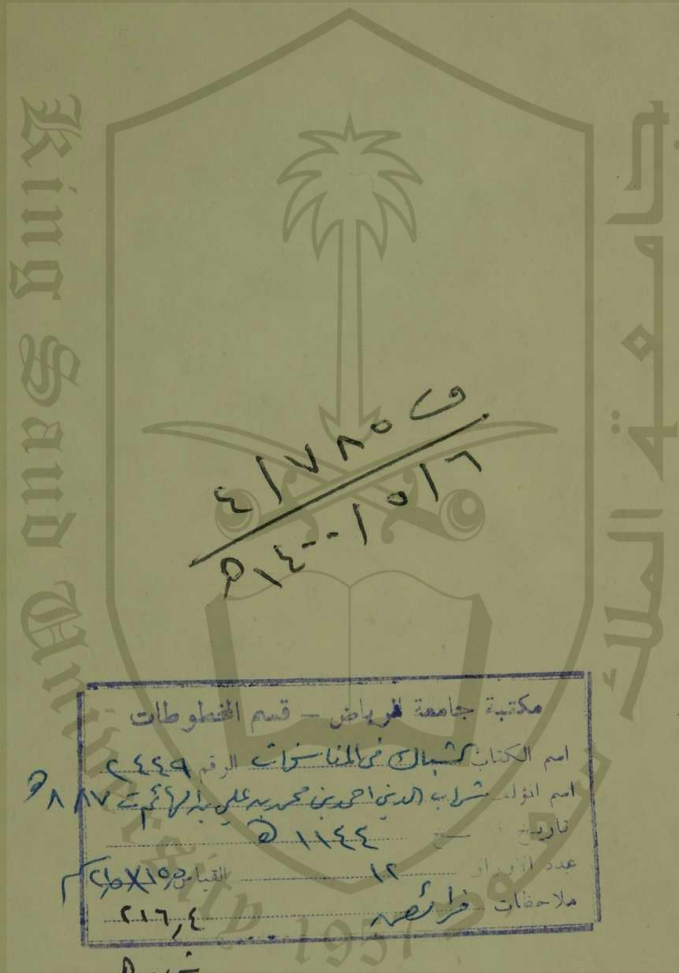 King Saud University
جامعة الملك
ف ٤١٧٨٥
١٤٠٠/٥/٦هـ
مكتبة جامعة الرياض - قسم المخطوطات
اسم الكتاب شباك في المناسخات الرقم ٢٤٤٩
اسم المؤلف شهاب الدين احمد بن محمد بن علي بن الهائم ت ٨٨٧هـ
تاريخ النسخ ١١٤٤هـ
عدد الأوراق ١٢ القياس
ملاحظات فرائض ٢١٦,٤
1957